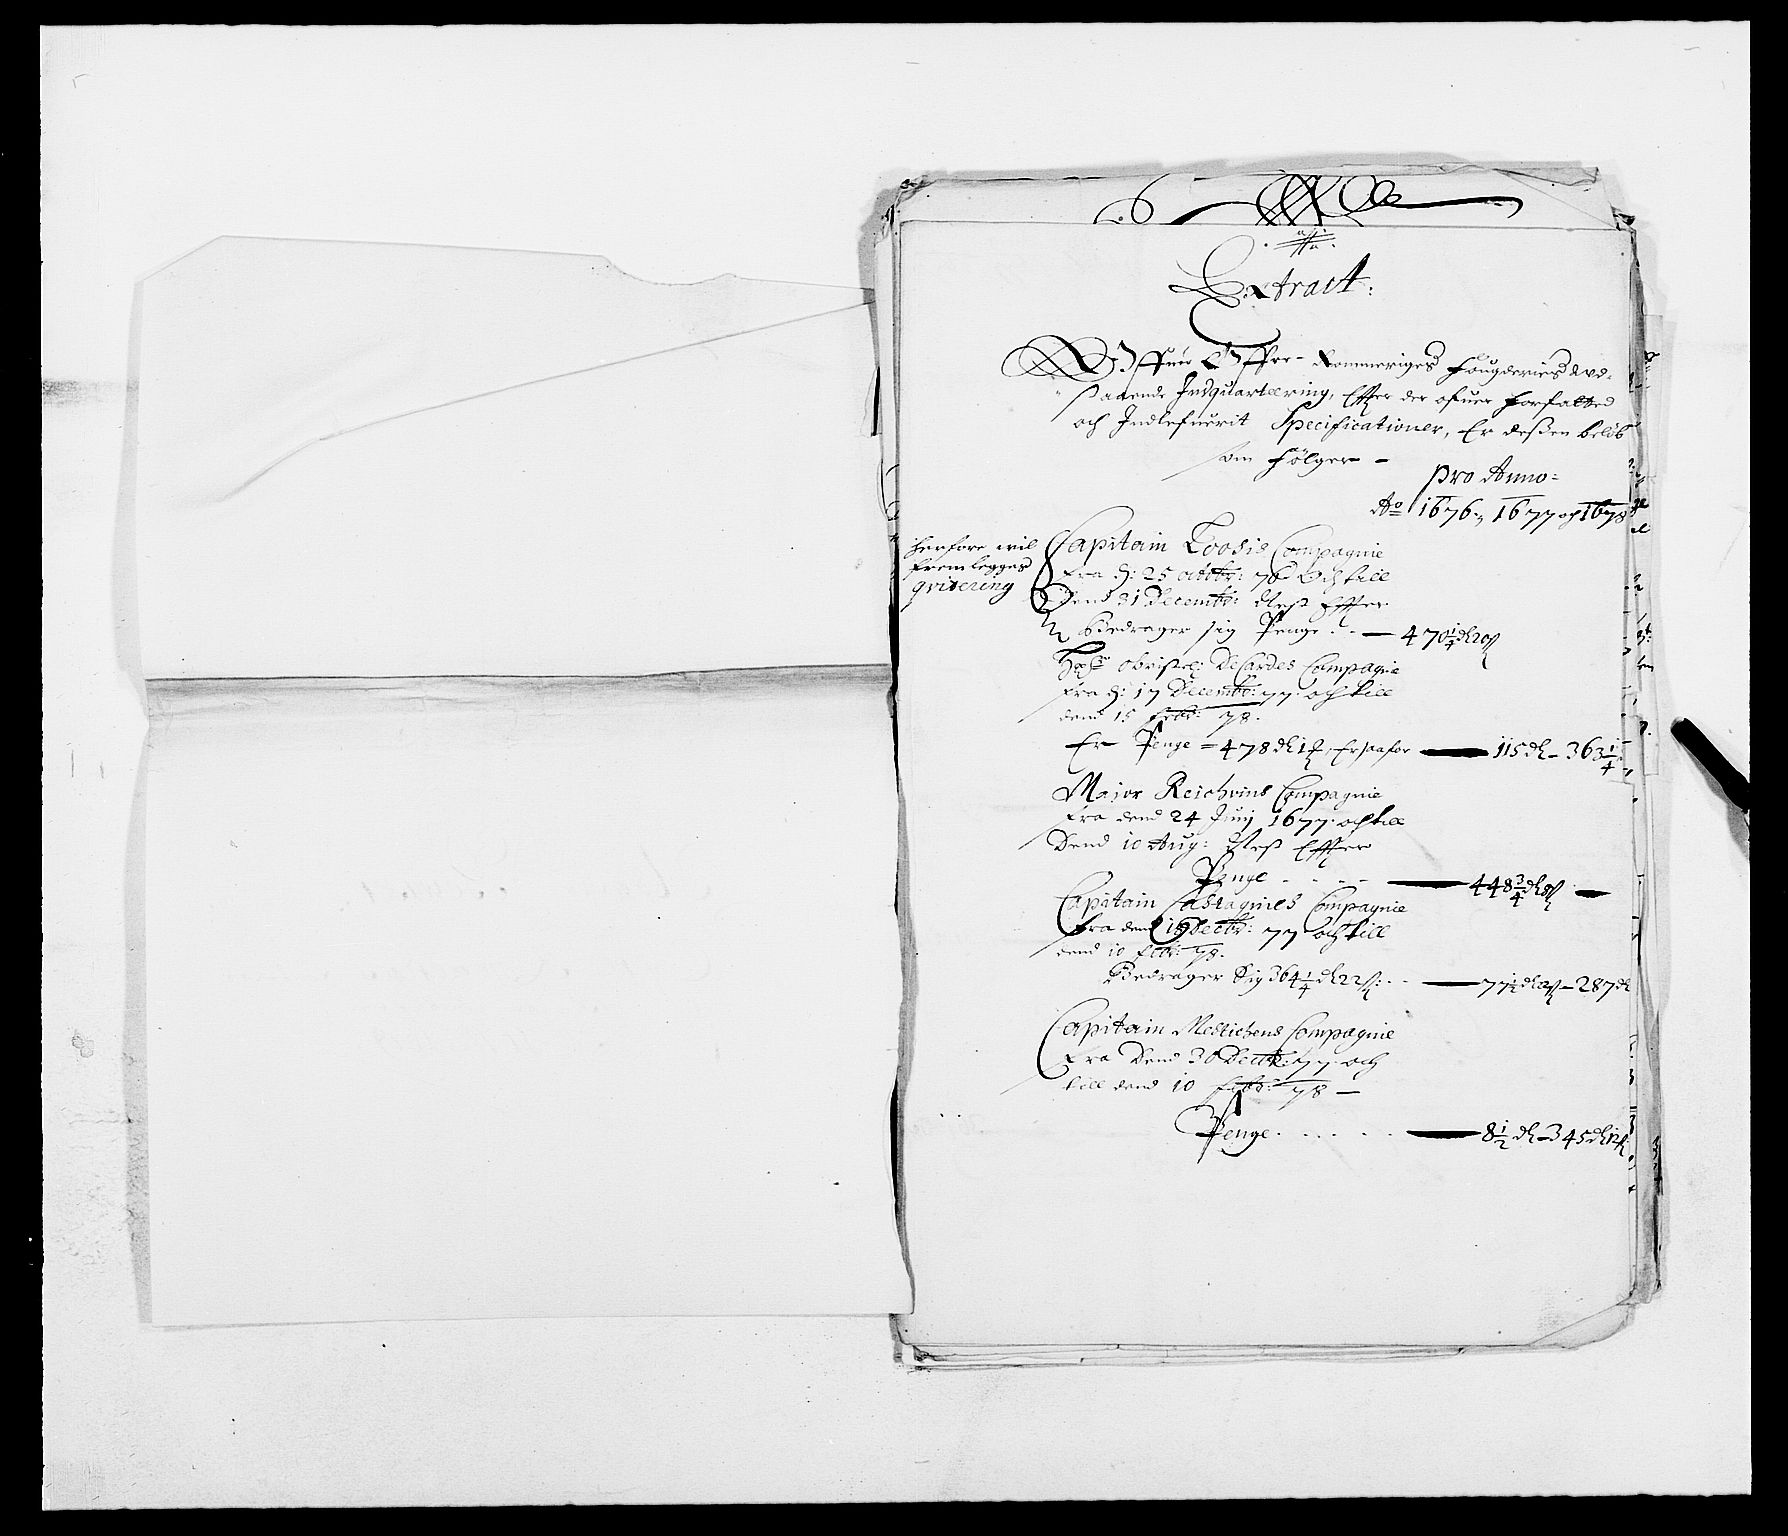 Extract:
Offuer Øffre-Rommeriges Fougderies Ud-
staaende Indquarteering, Effter der ofuer forfatted
och Indlefuerit Specificationer, Er deßen beløb
som følger -
pro Anno:
Ao 1676, 1677 och 1678
herfore wil
fremlegges
qvitering
Capitain Toosis Compagnie
fra d: 25 octobr: 76 och till
Dend 31 Decembr: Nest Effter
Bedrager sig Penge - - 470 1/4
obristl: DeCardes Compagnie
fra d: 17 Decembr: 77 och till
dend 15 Febr: 78.
Er Penge = 478 Er paafor 115 - 363 1/4
Major Reichwins Compagnie
fra dend 24 Junij 1677 och till
Dend 10 Aug: Nest Effter
Penge - - - - 448 3/4
Capitain Castagnies Compagnie
fra dend Decbr: 77 och till
dend 10 Febr: 78.
Bedrager Sig 364 1/4 77 1/2 - 287
Capitain Mestichens Compagnie
fra Dend 30 Decbr: 77 och
till dend 10 Febr: 78 -
Penge - - - - - 8 1/2 - 345